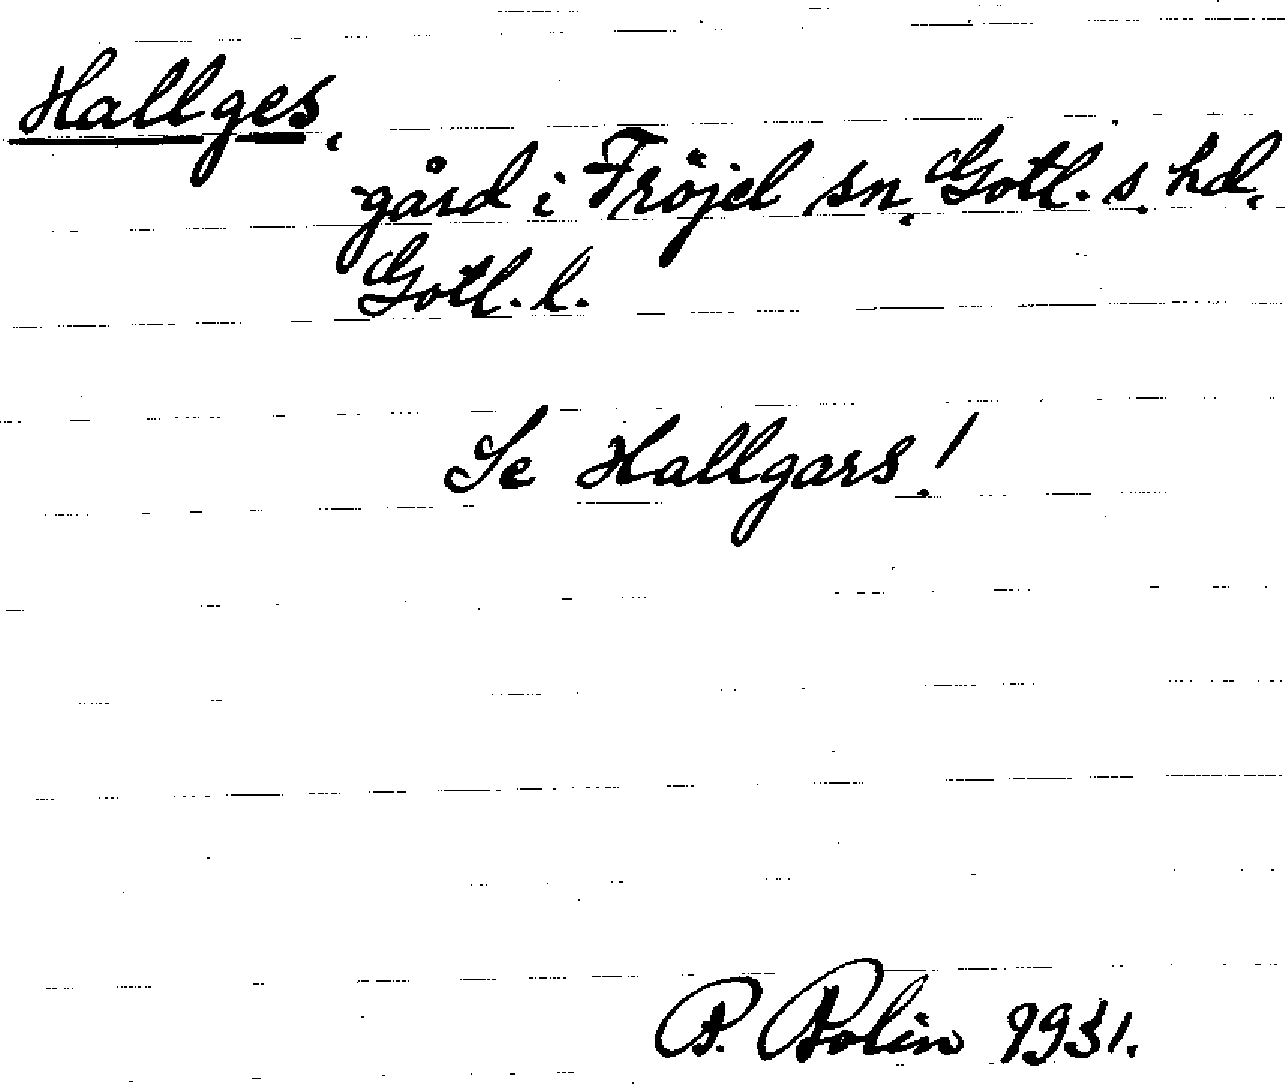 Hallges,
gård i Fröjel sn, Gotl. s. hd,
Gotl. l.
Se Hallgars!
P. Bolin 1931.